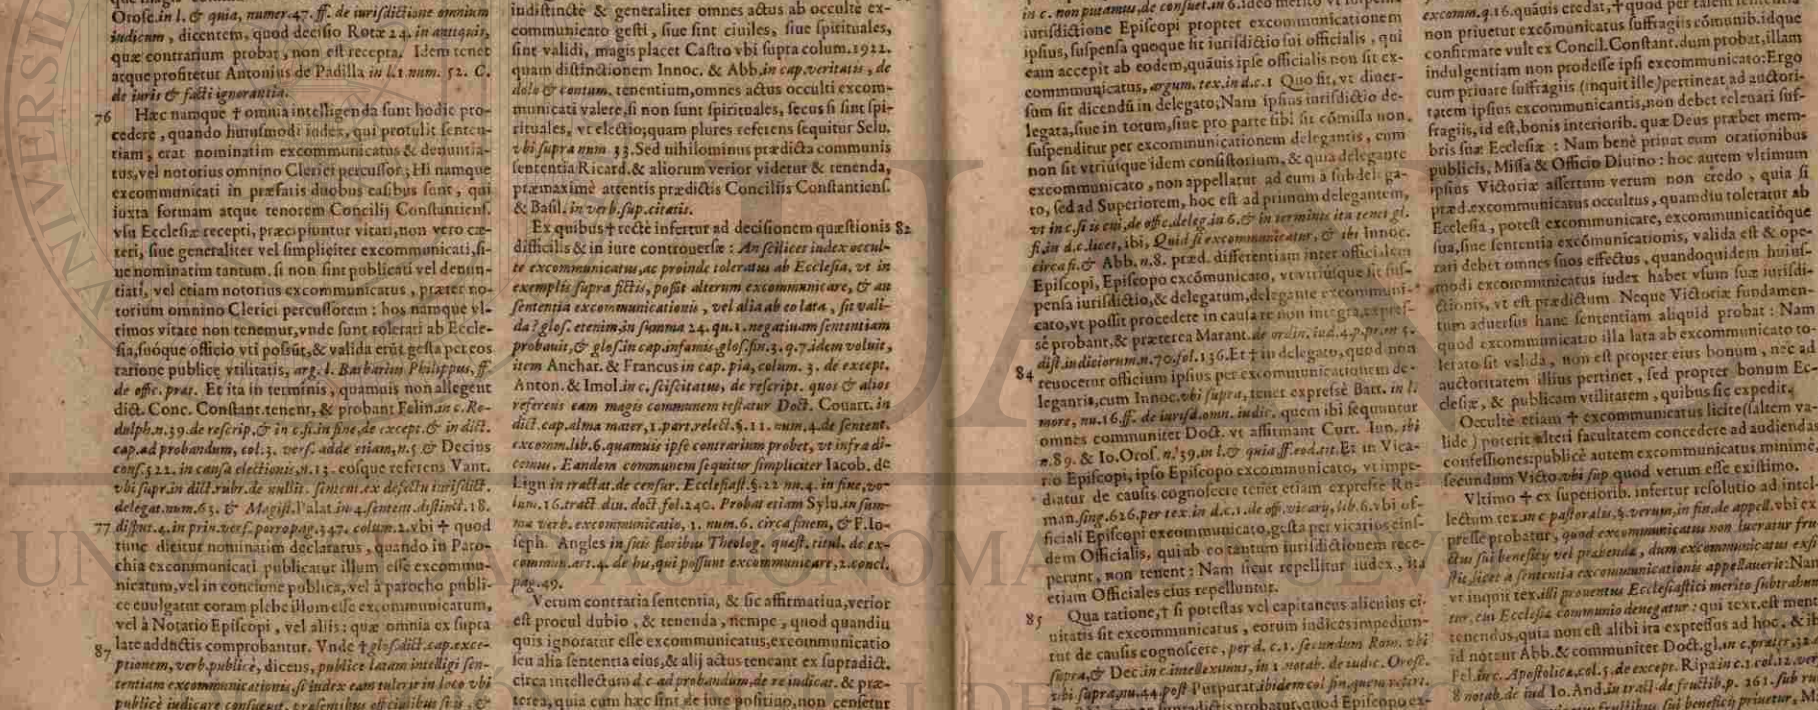 Orosc. in l. & quia, numer. 47. ff. de iurisdictione omnium
iudicum, dicentem, quod decisio Rotæ 24. in antiquis,
quæ contrarium probat, non est recepta. Idem tenet
atque profitetur Antonius de Padilla in l. 1. num. 52. C.
de iuris & facti ignorantia.
76 Hæc namque † omnia intelligenda sunt hodie pro-
cedere, quando huiusmodi iudex, qui protulit senten-
tiam, erat nominatim excommunicatus & denuntia-
tus, vel notorius omnino Clerici percussor; Hi namque
excommunicati in præfatis duobus casibus sunt, qui
iuxta formam atque tenorem Concilij Constantiens.
vsu Ecclesiæ recepti, præcipiuntur vitari, non vero cæ-
teri, siue generaliter vel simpliciter excommunicati, si-
ue nominatim tantum. si non sint publicati vel denun-
tiati, vel etiam notorius excommunicatus, præter no-
torium omnino Clerici percussorem: hos namque vl-
timos vitare non tenemur, vnde sunt tolerati ab Eccle-
sia, suóque officio vti possũt, & valida erũt gesta per eos
ratione publicę vtilitatis, arg. l. Barbarius Philippus, ff.
de offic. præt. Et ita in terminis, quamuis non allegent
dict. Conc. Constant. tenent, & probant Felin. in c. Ro-
dulph. n. 39. de rescrip. & in c. si. in fine, de except. & in dict.
cap. ad probandum, col. 3. vers. adde etiam, n. 5 & Decius
cons. 522. in causa electionis, n. 13. eosque referens Vant.
vbi supr. in dict. rubr. de nullit. sentent. ex defectu iurisdict.
delegat. num. 63. & Magist. Palat. in 4. sentent. distinct. 18.
77 disput. 4. in prin. vers. porro pag. 347. colum. 2. vbi † quod
tunc dicitur nominatim declaratus, quando in Paro-
chia excommunicati publicatur illum esse excommu-
nicatum, vel in concione publica, vel à parocho publi-
ce euulgatur coram plebe illum esse excommunicatum,
vel à Notario Episcopi, vel aliis: quæ omnia ex supra
late adductis comprobantur. Vnde † glos. dict. cap. exce-
87 ptionem, verb. publicè, dicens, publice latam intelligi sen-
tentiam excommunicationis, si iudex eam tulerit in loco vbi
publicè iudicare consueuit, præsentibus officialibus suis, &
indistinctè & generaliter omnes actus ab occultè ex-
communicato gesti, siue sint ciuiles, siue spirituales,
sint validi, magis placet Castro vbi supra colum. 1922.
quam distinctionem Innoc. & Abb. in cap. veritatis, de
dolo & contum. tenentium, omnes actus occulti excom-
municati valere, si non sunt spirituales, secus si sint spi-
rituales, vt electio; quam plures referens sequitur Selu.
vbi supra num. 33. Sed nihilominus prædicta communis
sententia Ricard. & aliorum verior videtur & tenenda,
præmaximè attentis prædictis Conciliis Constantiens.
& Basil. in verb. sup. citatis.
Ex quibus † rectè infertur ad decisionem quæstionis 82
difficilis & in iure controuersæ: An scilicet iudex occul-
te excommunicatus, ac proinde toleratus ab Ecclesia, vt in
exemplis supra fictis, possit alterum excommunicare, & an
sententia excommunicationis, vel alia ab eo lata, sit vali-
da? glos. etenim, in summa 24. qu. 1. negatiuam sententiam
probauit, & glos. in cap. infamis. glos. fin. 3. q. 7. idem voluit,
item Anchar. & Francus in cap. pia, colum. 3. de except.
Anton. & Imol. in c. sciscitatus, de rescript. quos & alios
referens eam magis communem testatur Doct. Couarr. in
dict. cap. alma mater, 1. part. relect. §. 11. num. 4. de sentent.
excomm. lib. 6. quamuis ipse contrarium probet, vt infra di-
cemus. Eandem communem sequitur simpliciter Iacob. de
Lign in tractat. de censur. Ecclesiast. §. 22 nu. 4. in fine, vo-
lum. 16. tract. diu. doct. fol. 240. Probat etiam Sylu. in sum-
ma verb. excommunicatio, 1. num. 6. circa finem, & F. Io-
seph. Angles in suis floribus Theolog. quæst. titul. de ex-
commun. art. 4. de hu, qui possunt excommunicare, 2. concl.
pag. 49.
Verum contraria sententia, & sic affirmatiua, verior
est procul dubio, & tenenda, nempe, quod quandiu
quis ignoratur esse excommunicatus, excommunicatio
seu alia sententia eius, & alij actus teneant ex supradict.
circa intellectum d. c. ad probandum, de re iudicat. & præ-
terea, quia cum hæc sint de iure positiuo, non censetur
in c. non putamus, de consuet. in 6. ideo merito
iurisdictione Episcopi propter excommunicationem
ipsius, suspensa quoque sit iurisdictio sui officialis, qui
eam accepit ab eodem, quãuis ipse officialis non sit ex-
communicatus, argum. tex. in d. c. 1 Quo fit, vt diuer-
sum sit dicendũ in delegato; Nam ipsius iurisdictio de-
legata, siue in totum, siue pro parte sibi sit cõmissa non
suspenditur per excommunicationem delegantis, cum
non sit vtriusque idem consistorium, & quia delegante
excommunicato, non appellatur ad eum à subdelega-
to, sed ad Superiorem, hoc est ad primum delegantem,
vt in c. si is cui, de offic. deleg. in 6. & in terminis ita tenet gl.
fi. in d. c. licet, ibi, Quid si excommunicatur, & ibi Innoc.
circa fi. & Abb. n. 8. præd. differentiam inter officialem
Episcopi, Episcopo excõmunicato, vt vtriúsque sit sus-
pensa iurisdictio, & delegatum, delegante excommuni-
cato, vt possit procedere in causa re non integra, expres-
sè probant, & præterea Marant. de ordin. iud. 4. p. prin 5.
dist. iudiciorum. n. 70. fol. 136. Et † in delegato, quod non
84 reuocetur officium ipsius per excommunicationem de-
legantis, cum Innoc. vbi supra, tenet expressè Bart. in l.
more, nu. 16. ff. de iurisd. omn. iudic. quem ibi sequuntur
omnes communiter Doct. vt affirmant Curt. Iun. ibi
n. 89. & Io. Oros. n. 39. in l. & quia, ff. eod. tit. Et in Vica-
rio Episcopi, ipso Episcopo excommunicato, vt impe-
diatur de causis cognoscere tenet etiam expresse Ro-
man. sing. 626. per tex. in d. c. 1. de off. vicarij, lib. 6. vbi of-
ficiali Episcopi excommunicato, gesta per vicarios eius-
dem Officialis, qui ab eo tantum iurisdictionem rece-
perunt, non tenent: Nam sicut repellitur iudex, ita
etiam Officiales eius repelluntur.
85 Qua ratione, † si potestas vel capitaneus alicuius ci-
uitatis sit excommunicatus, eorum iudices impediun-
tur de causis cognoscere, per d. c. 1. secundum Rom. vbi
supra, & Dec. in c. intelleximus, in 1. notab. de iudic. Orosc.
vbi supra, nu. 44. post Purpurat. ibidem col fin. quem refert.
probatur, quod Episcopo ex-
excomm. q. 16. quãuis credat, † quod per
non priuetur excõmunicatus suffragiis cõmunib. idque
confirmare vult ex Concil. Constant. dum probat, illam
indulgentiam non prodesse ipsi excommunicato: Ergo
cum priuare suffragiis (inquit ille) pertineat ad auctori-
tatem ipsius excommunicantis, non debet releuari suf-
fragiis, id est, bonis interiorib. quæ Deus præbet mem-
bris suæ Ecclesiæ: Nam benè priuat eum orationibus
publicis, Missa & Officio Diuino: hoc autem vltimum
ipsius Victoriæ assertum verum non credo, quia si
præd. excommunicatus occultus, quamdiu toleratur ab
Ecclesia, potest excommunicare, excommunicatióque
sua, siue sententia excõmunicationis, valida est & ope-
rari debet omnes suos effectus, quandoquidem huius-
modi excommunicatus iudex habet vsum suæ iurisdi-
ctionis, vt est prædictum. Neque Victoriæ fundamen-
tum aduersus hanc sententiam aliquid probat: Nam
quod excommunicatio illa lata ab excommunicato to-
lerato sit valida, non est propter eius bonum, nec ad
auctoritatem illius pertinet, sed propter bonum Ec-
clesiæ, & publicam vtilitatem, quibus sic expedit.
Occultè etiam † excommunicatus licite (saltem va-
lide) poterit alteri facultatem concedere ad audiendas
confessiones: publicè autem excommunicatus minime,
secundum Victo. vbi sup quod verum esse existimo.
Vltimo † ex superiorib. infertur resolutio ad intel-
lectum tex. in c pastoralis, §. verum, in fin. de appell. vbi ex-
presse probatur, quod excommunicatus non lucratur fru-
ctus sui beneficij vel præbendæ, dum excommunicatus exsi-
stit, licet à sententia excommunicationis appellauerit: Nam
vt inquit tex. illi prouentus Ecclesiastici merito subtrahun-
tur, cui Ecclesiæ communio denegatur: qui text. est
tenendus, quia non est alibi ita expressus ad hoc, &
id notant Abb. & communiter Doct. gl. in c. præter, 32.
Fel. in c. Apostolicæ, col. 5. de except. Ripa in c. 1 col. 12.
8 notab. de iud Io. And. in tract. de fructib. p. 261. sub
fructibus sui beneficij priuetur,
UNIVERSIDAD AUTÓNOMA DE NUEVO